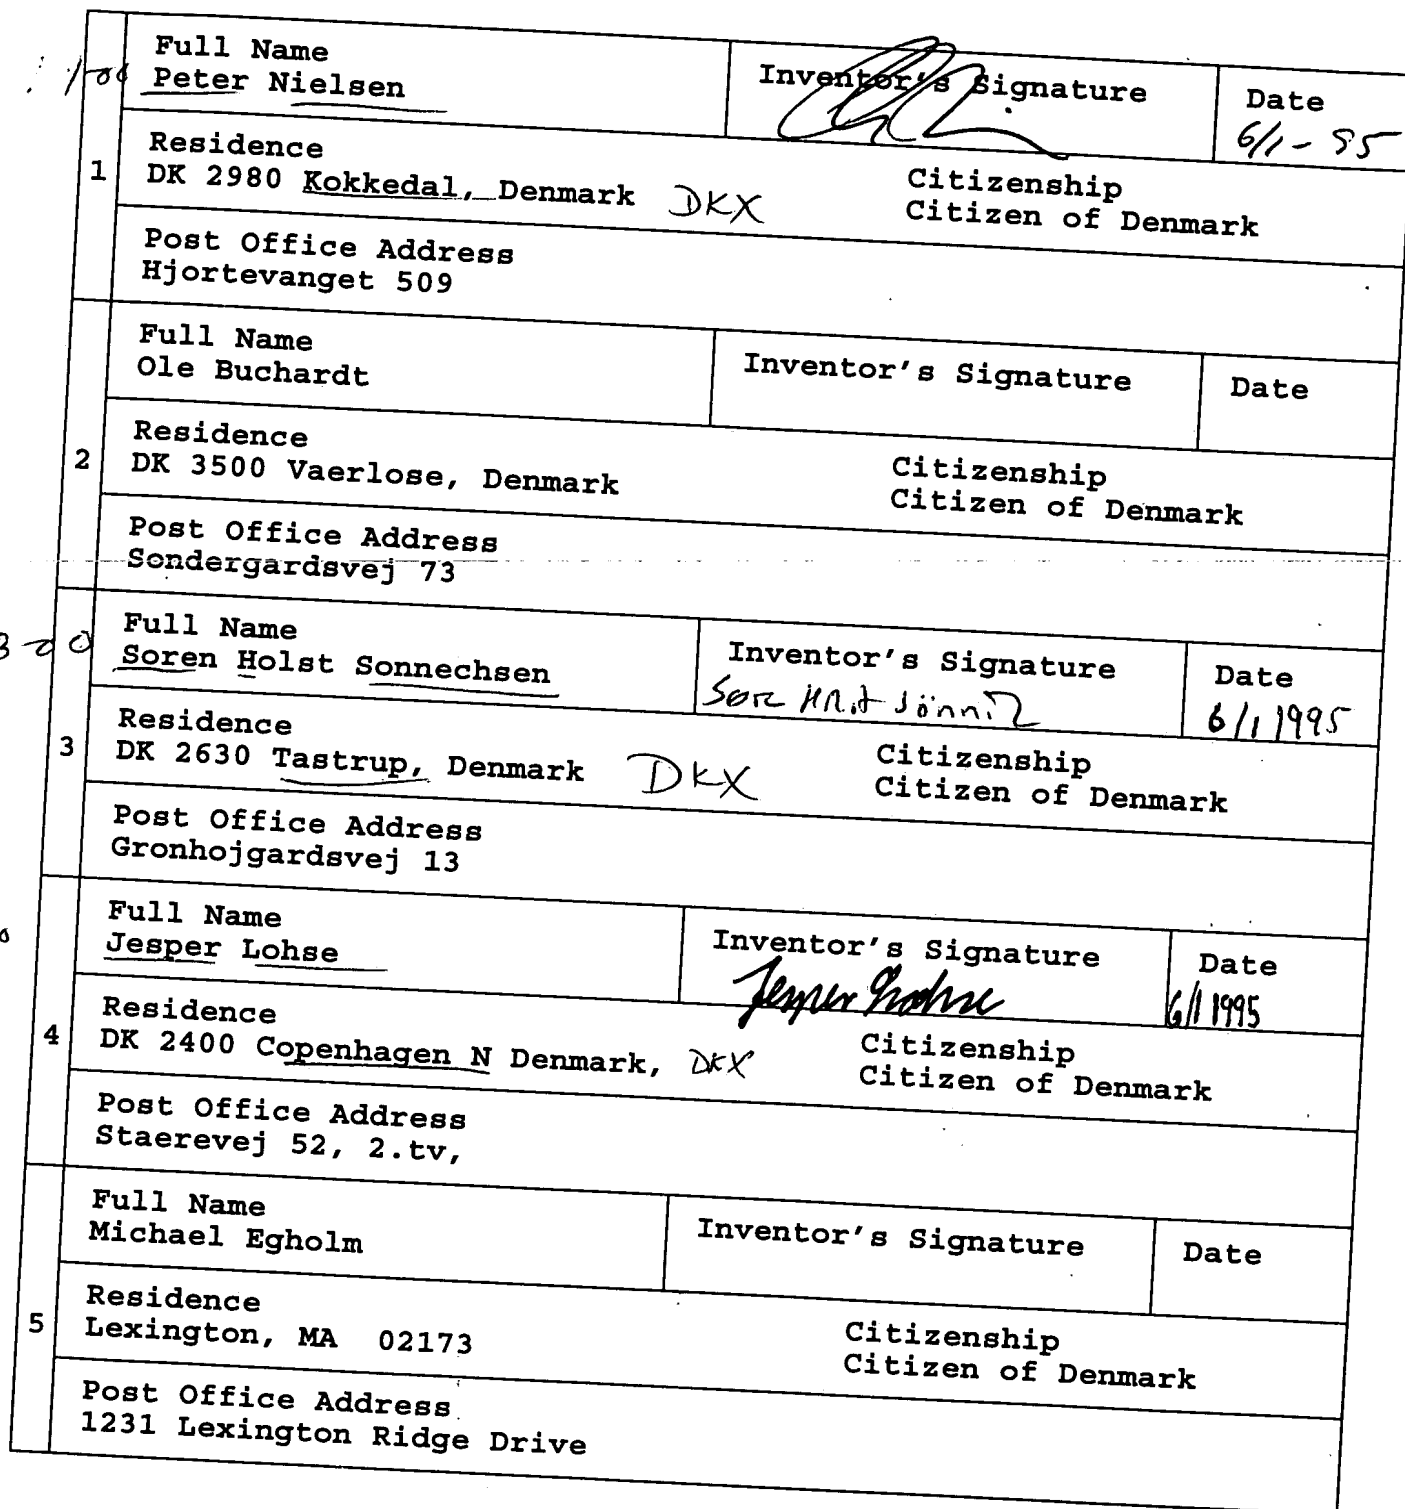 1-00
Full Name
Peter Nielsen
Inventor's Signature
Date
6/1 - 95
1
Residence
DK 2980 Kokkedal, Denmark DKX
Citizenship
Citizen of Denmark
Post Office Address
Hjortevanget 509
Full Name
Ole Buchardt
Inventor's Signature
Date
2
Residence
DK 3500 Vaerlose, Denmark
Citizenship
Citizen of Denmark
Post Office Address
Sondergardsvej 73
3-00
Full Name
Soren Holst Sonnechsen
Inventor's Signature
Date
6/1 1995
3
Residence
DK 2630 Tastrup, Denmark DKX
Citizenship
Citizen of Denmark
Post Office Address
Gronhojgardsvej 13
Full Name
Jesper Lohse
Inventor's Signature
Jesper Lohse
Date
6/1 1995
4
Residence
DK 2400 Copenhagen N Denmark, DKX
Citizenship
Citizen of Denmark
Post Office Address
Staerevej 52, 2.tv,
Full Name
Michael Egholm
Inventor's Signature
Date
5
Residence
Lexington, MA 02173
Citizenship
Citizen of Denmark
Post Office Address
1231 Lexington Ridge Drive